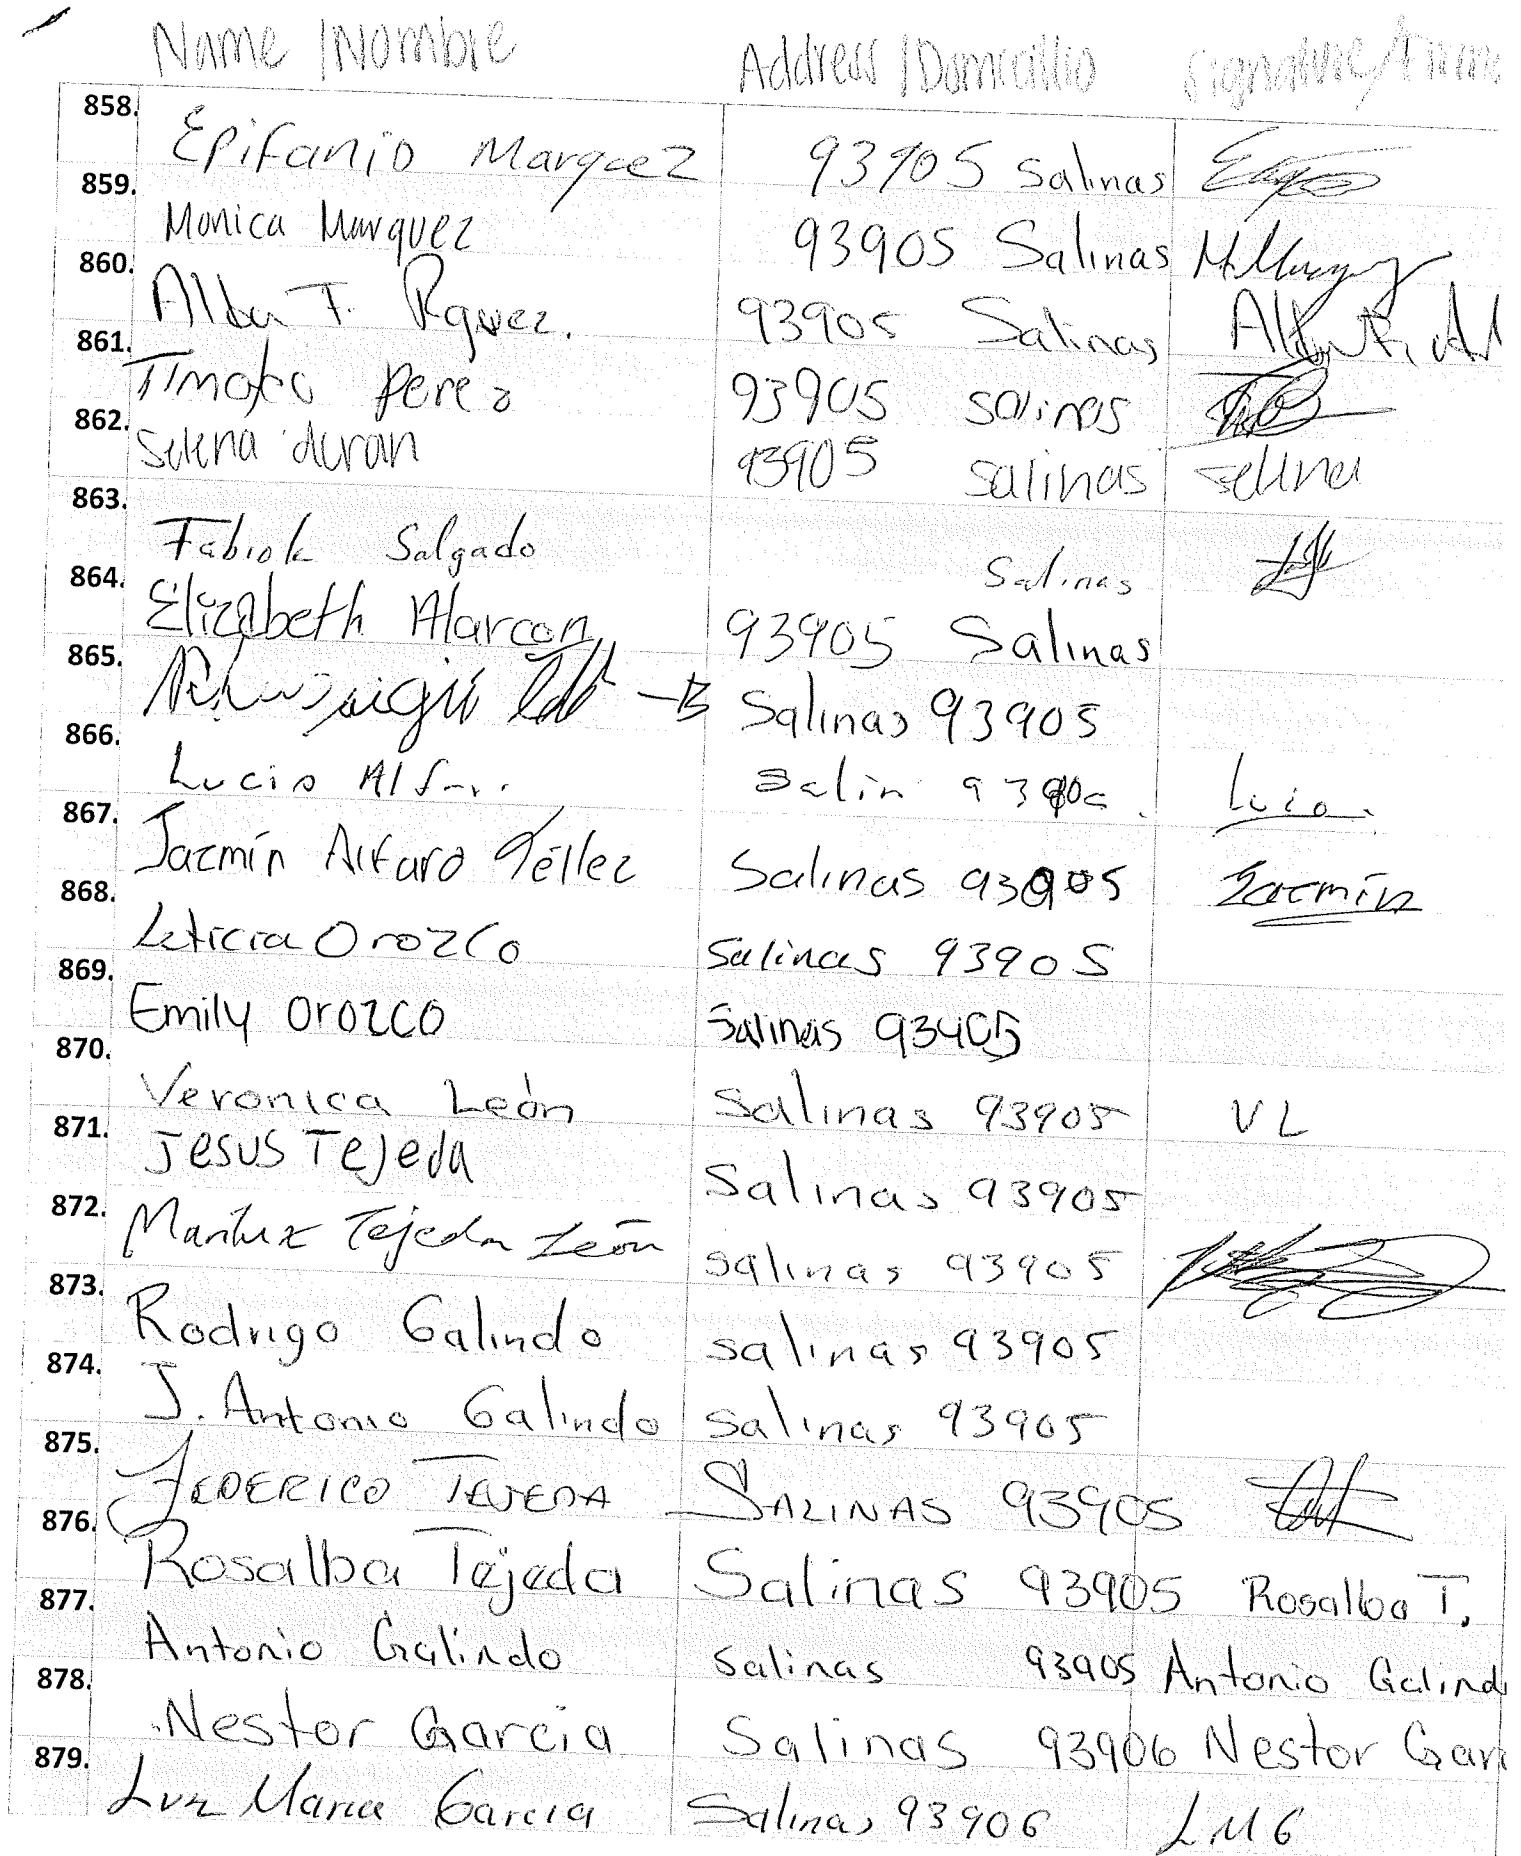 Name / Nombre Address / Domicilio Signature / Firma
858. Epifanio Marquez 93905 Salinas
859. Monica Marquez 93905 Salinas M. Marquez
860. Alba F. 93905 Salinas
861. Timoteo perez 93905 salinas
862. Selena duran 93905 salinas selena
863. Fabiola Salgado Salinas
864. Elizabeth Alarcon 93905 Salinas
865. Salinas 93905
866. Lucio Salin
867. Jazmín Alfaro Téllez Salinas 93905 Jazmín
868. Leticia Orozco Salinas 93905
869. Emily Orozco Salinas 93905
870. Veronica León Salinas 93905 V L
871. Jesus Tejeda Salinas 93905
872. Mariluz Tejeda León salinas 93905
873. Rodrigo Galindo salinas 93905
874. J. Antonio Galindo salinas 93905
875. FEDERICO TEJEDA SALINAS 93905
876. Rosalba Tejeda Salinas 93905 Rosalba T.
877. Antonio Galindo Salinas 93905 Antonio Galind
878. Nestor Garcia Salinas 93906 Nestor Gar
879. Luz Maria Garcia Salinas 93906 L M G